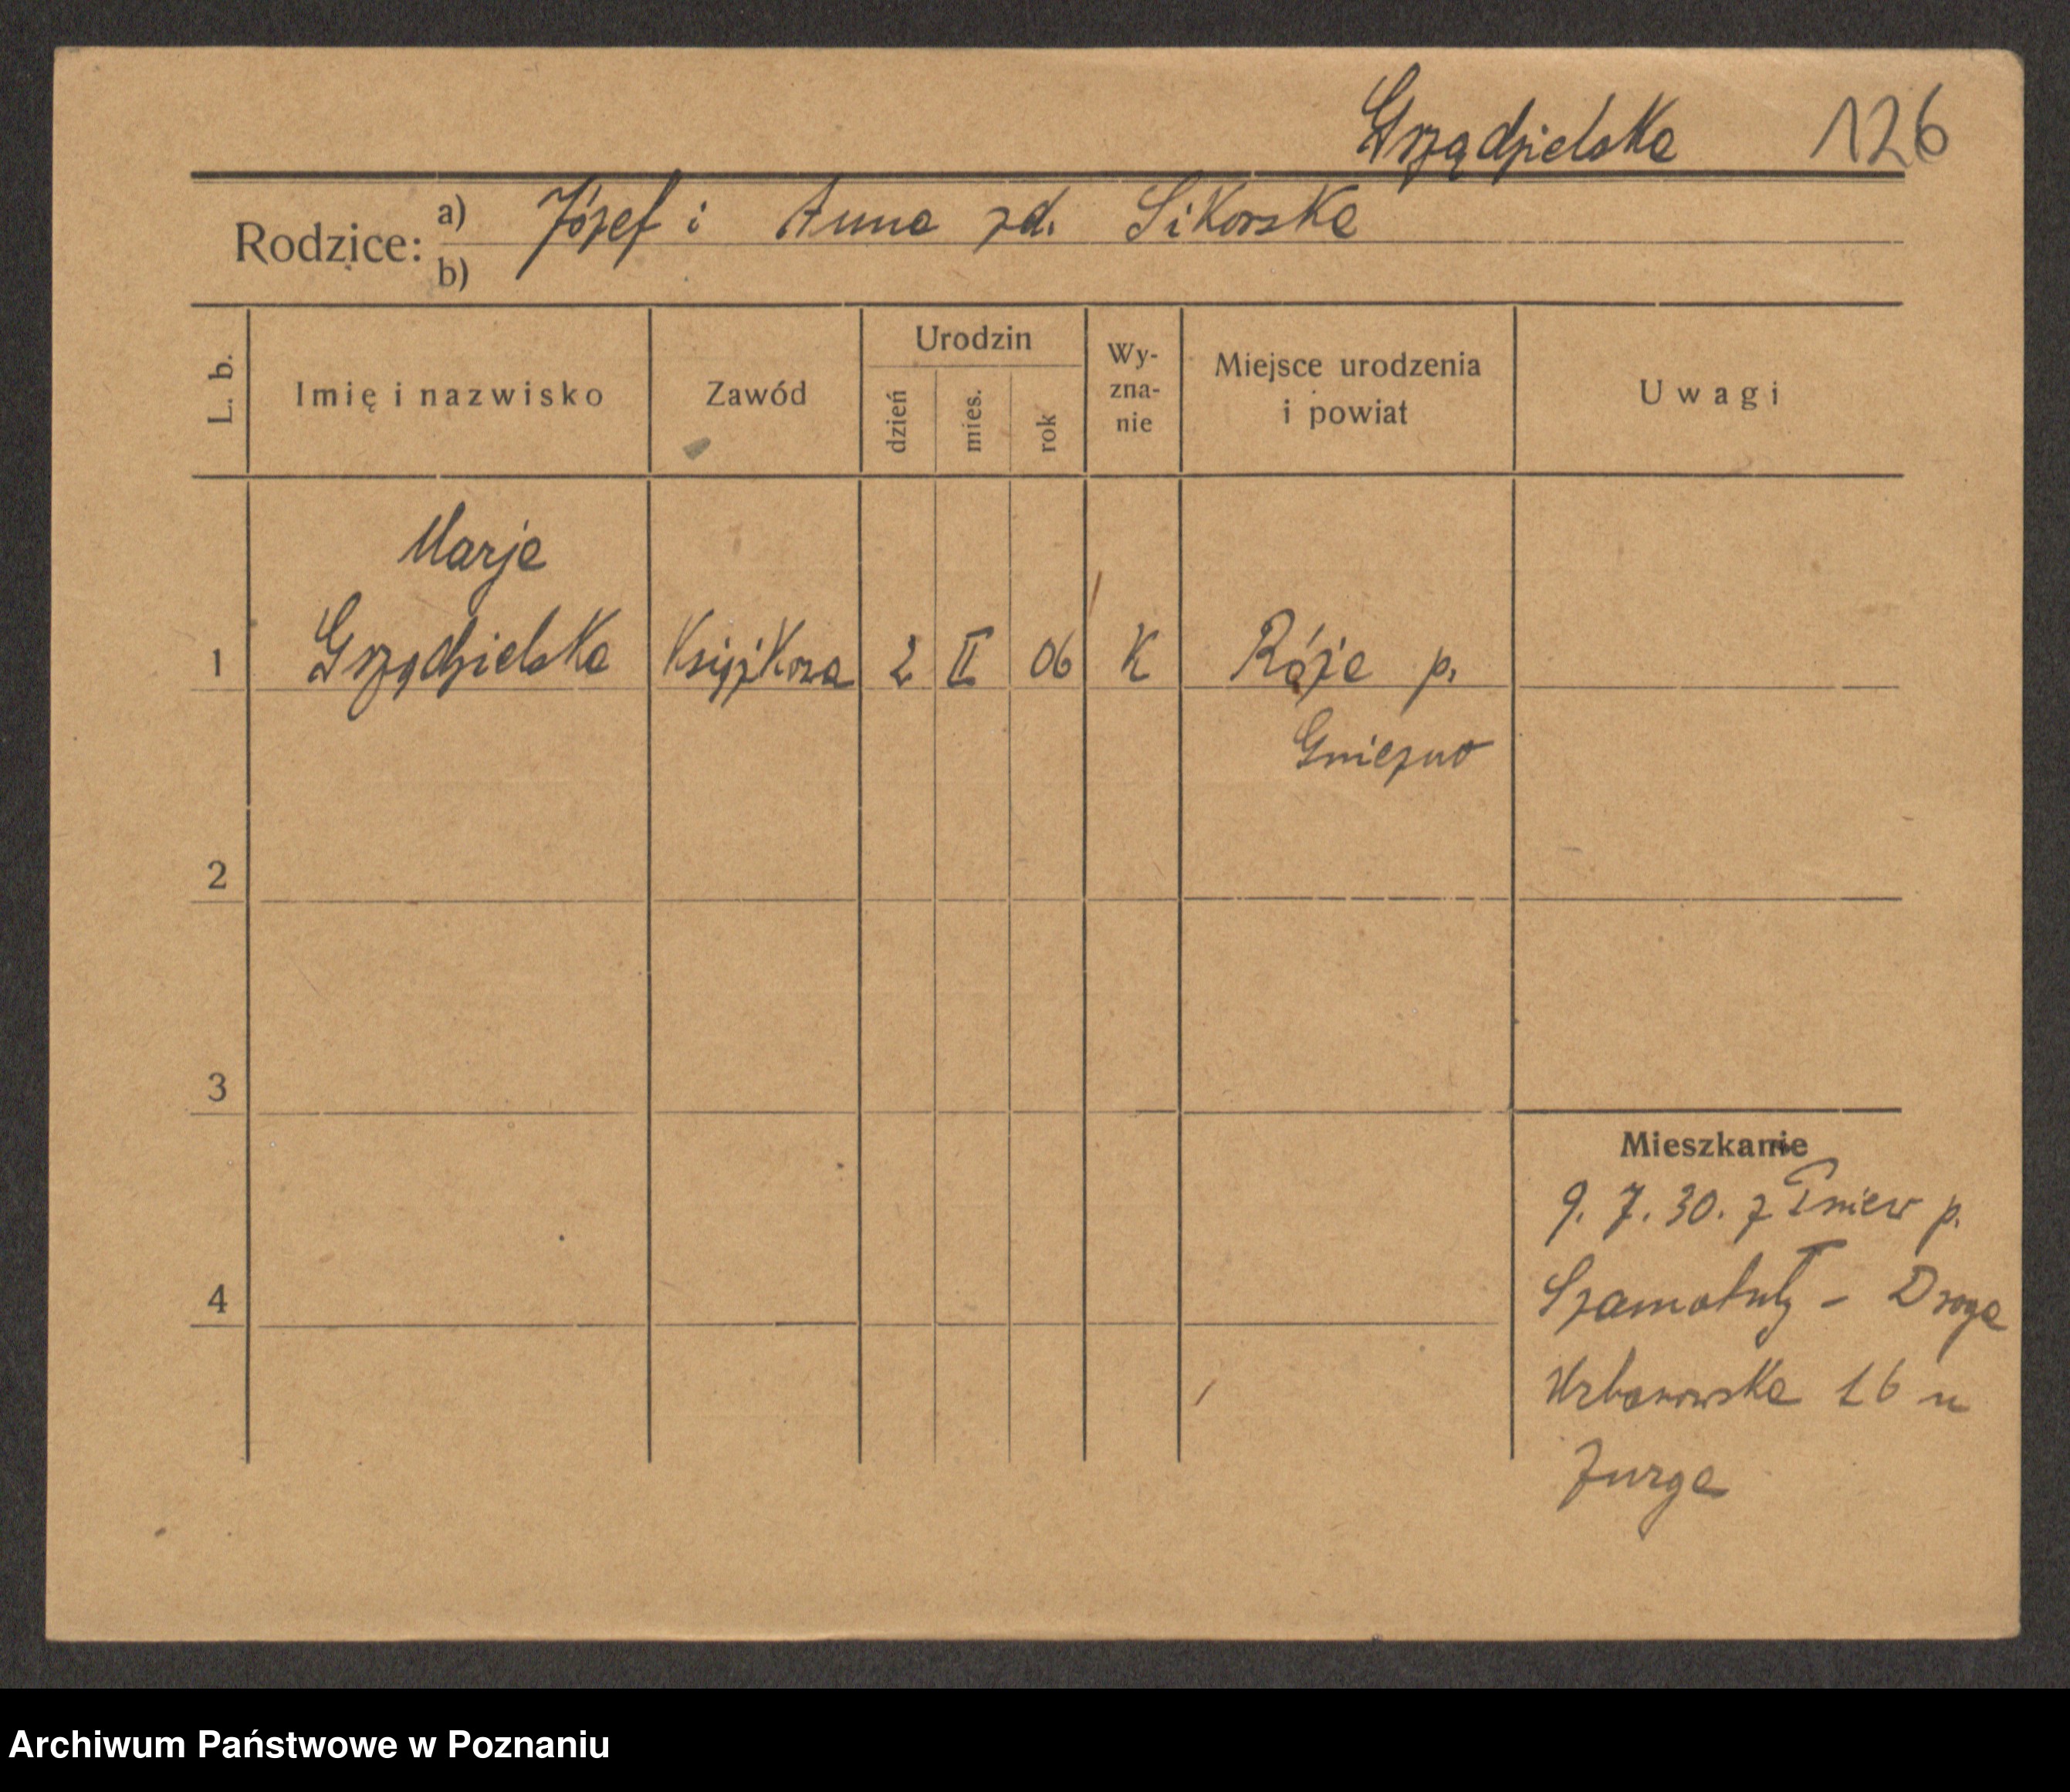 Grządzielska 126
Rodzice: a) Józef i Anna zd. Sikorska
b)
L. b.
Imię i nazwisko
Zawód
Urodzin
dzień
mies.
rok
Wy-
zna-
nie
Miejsce urodzenia
i powiat
Uwagi
Marja
1 Grządzielska Książkowa 2 II 06 K Róża p.
Gniezno
2
3
4
Mieszkanie
9. 7. 30. z Gniew p.
Szamotuły - Droga
Urbanowska 16 u
Jurga
Archiwum Państwowe w Poznaniu